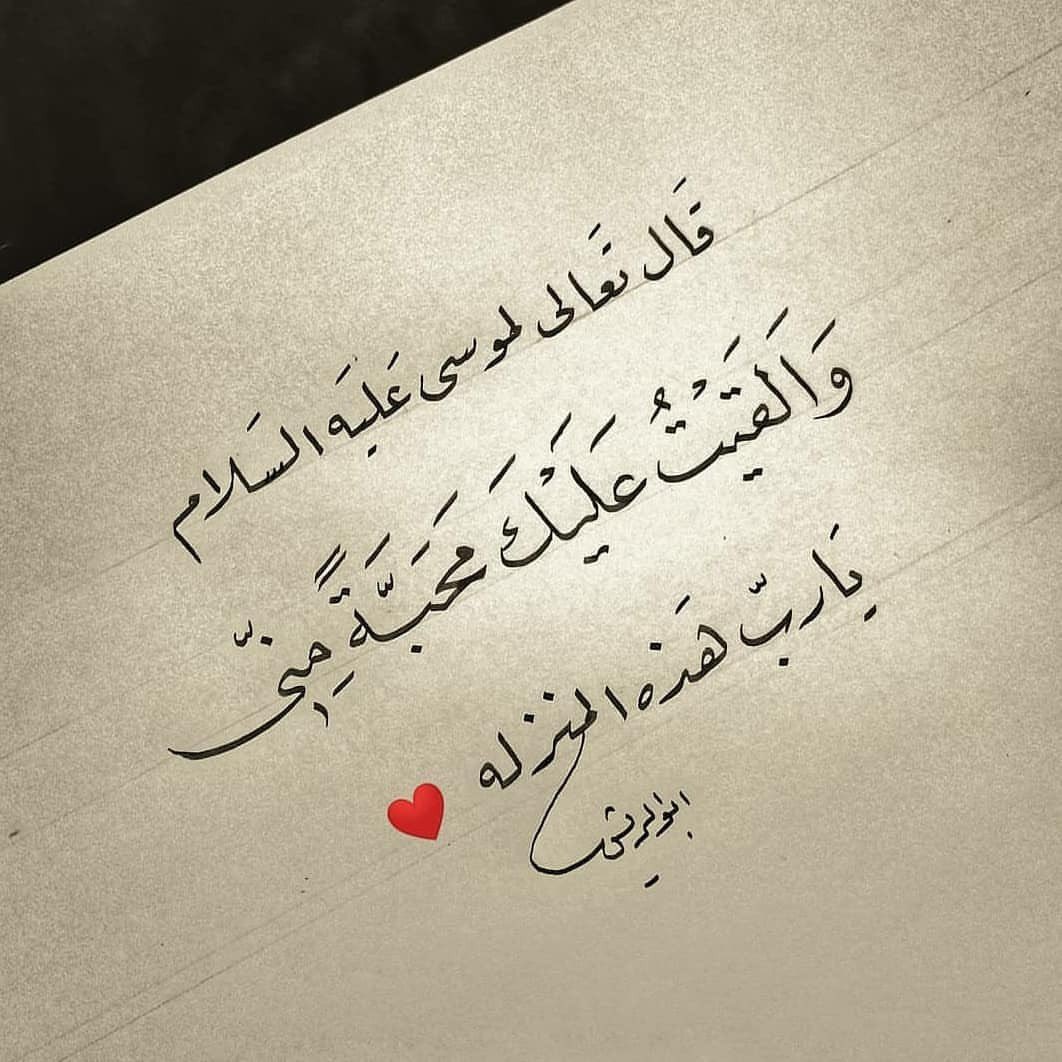 قَال تَعالى لموسى عَليَه السَلام
وَاَلَقَيْتُ عَلَيْكَ مَحَبَّةًَ مِنّي
يَاربّ لهَذه المنزله